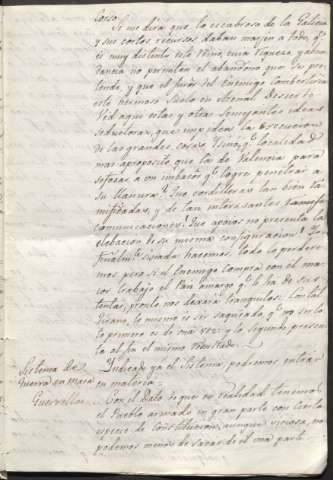 Si me dira que lo escabroso de la Galicia
y sus cortos recursos daban margen a todo, q.e
es muy distinto este Reino, cuya riqueza y abun
dancia no permiten el abandono que se pre
tende, y que el furor del Enemigo combertiria
este hermoso Suelo en eternal desierto.
Ved aqui estas y otras semejantes ideas
seductoras, que impiden la execucion
de las grandes cosas. Y sino, q.e localidad
mas aproposito, que la de Valencia para
sofocar a un imbasor q.e logre penetrar a
su llanura? Que cordilleras tan bien ra
mificadas, y de tan interesantes
comunicaciones? Que apoyos no presenta la
elebacion de su misma configuracion?
nada hacemos, todo lo perdere
mos pero si el Enemigo compra con el ma
yor trabajo el Pan amargo q.e le ha de sus
tentar, pronto nos dexará tranquilos. Con tal
tirano, lo mismo es ser saqueado, q.e no serlo
lo primero es de una vez, y lo segundo presen
ta al fin el mismo resultado.
Sistema de
Guerra en masa
Guerrillas
Indicado ya el Sistema, podremos entrar
en materia.
Con el dato de que en realidad tenemos
el Pueblo armado en gran parte con cierta
especie de constitucion, aunque viciosa, no
podemos menos de sacar de el una parte